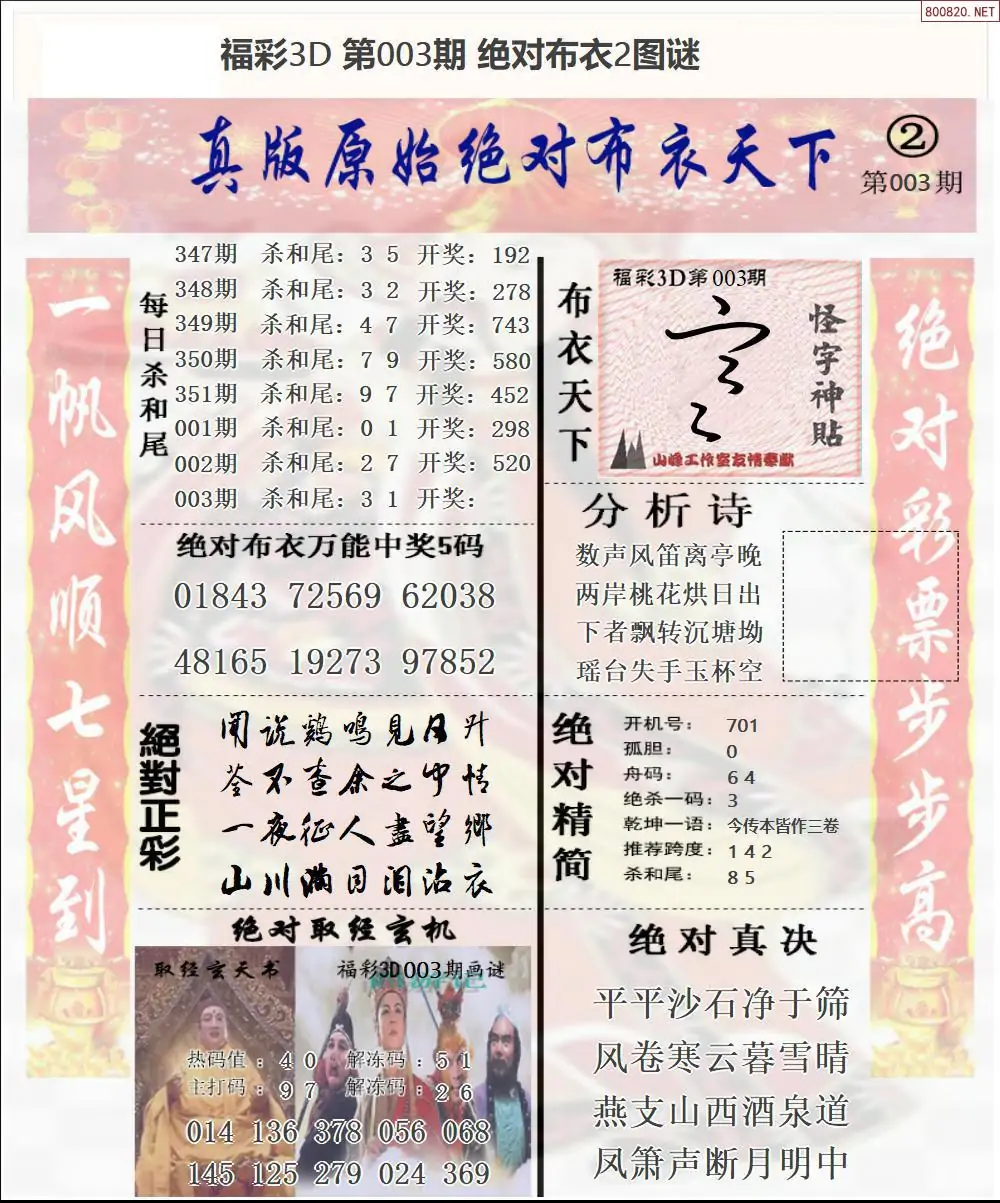 800820.NET
福彩3D 第003期 绝对布衣2图谜
真版原始绝对布衣天下
②
第003期
一帆风顺七星到
每日杀和尾
347期 杀和尾：3 5 开奖：192
348期 杀和尾：3 2 开奖：278
349期 杀和尾：4 7 开奖：743
350期 杀和尾：7 9 开奖：580
351期 杀和尾：9 7 开奖：452
001期 杀和尾：0 1 开奖：298
002期 杀和尾：2 7 开奖：520
003期 杀和尾：3 1 开奖：
绝对布衣万能中奖5码
01843 72569 62038
48165 19273 97852
絕對正彩
闻说鷄鸣见日升
茎不查余之中情
一夜征人盡望鄉
山川满目泪沾衣
绝对取经玄机
取经玄天书
福彩3D003期画谜
热码值：4 0 解冻码：5 1
主打码：9 7 解冻码：2 6
014 136 378 056 068
145 125 279 024 369
布衣天下
福彩3D第003期
怪字神貼
山峰工作室友情奉献
分析诗
数声风笛离亭晚
两岸桃花烘日出
下者飘转沉塘坳
瑶台失手玉杯空
绝对精简
开机号：701
孤胆：0
舟码：6 4
绝杀一码：3
乾坤一语：今传本皆作三卷
推荐跨度：1 4 2
杀和尾：8 5
绝对真决
平平沙石净于筛
风卷寒云暮雪晴
燕支山西酒泉道
凤箫声断月明中
绝对彩票步步高